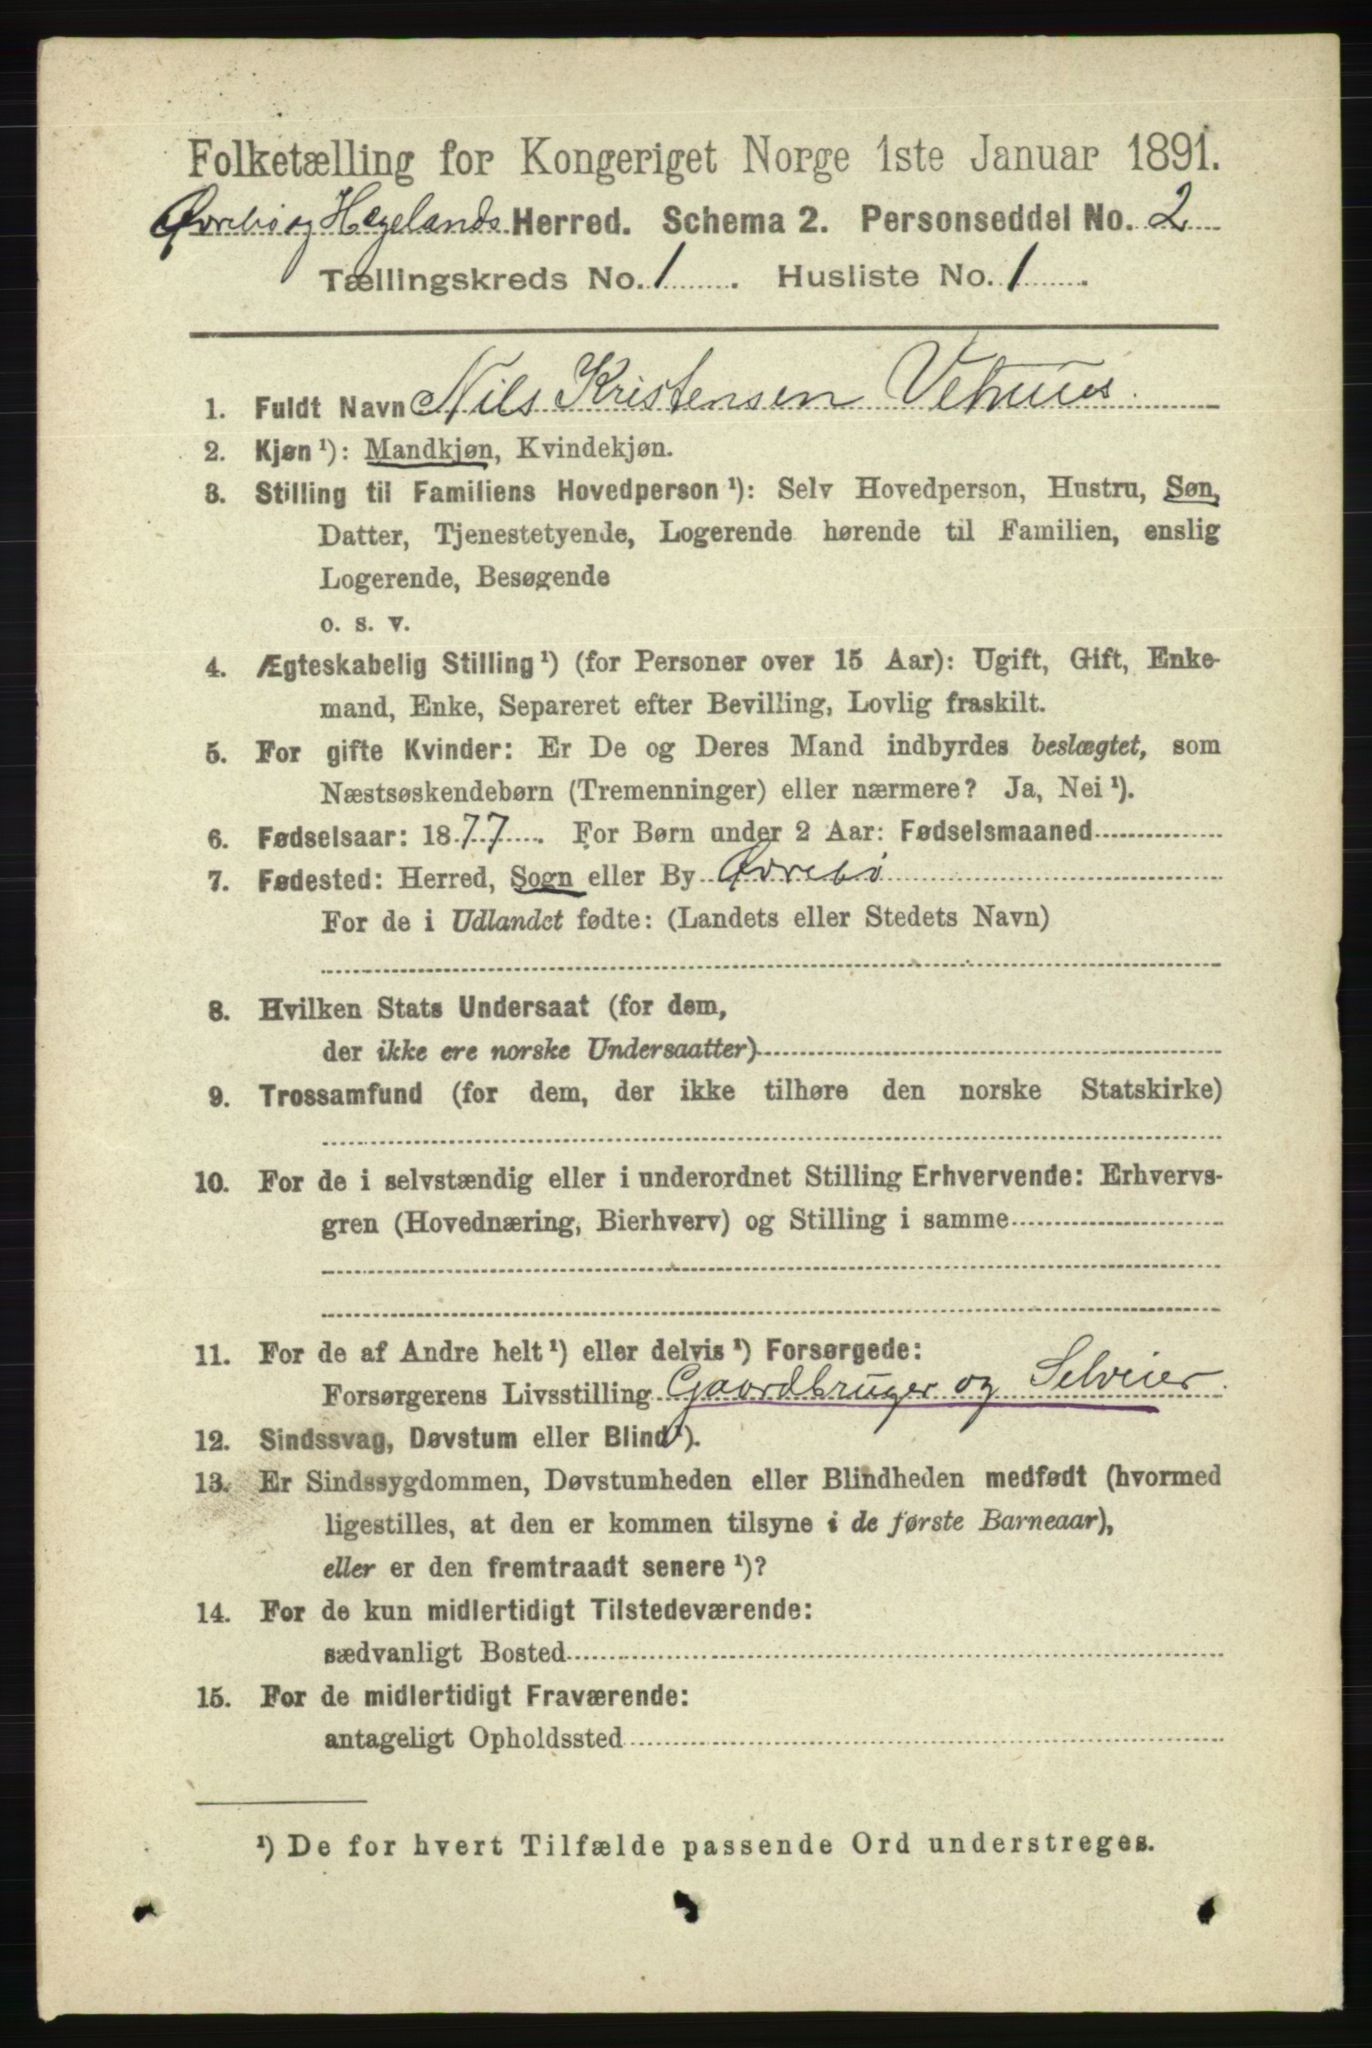 Folketælling for Kongeriget Norge 1ste Januar 1891.
Øvrebø og Hægelands Herred. Schema 2. Personseddel No. 2
Tællingskreds No. 1. Husliste No. 1.
1. Fuldt Navn Nils Kristensen Vehuus.
2. Kjøn ¹): Mandkjøn, Kvindekjøn.
3. Stilling til Familiens Hovedperson ¹): Selv Hovedperson, Hustru, Søn,
Datter, Tjenestetyende, Logerende hørende til Familien, enslig
Logerende, Besøgende
o. s. v.
4. Ægteskabelig Stilling ¹) (for Personer over 15 Aar): Ugift, Gift, Enke-
mand, Enke, Separeret efter Bevilling, Lovlig fraskilt.
5. For gifte Kvinder: Er De og Deres Mand indbyrdes beslægtet, som
Næstsøskendebørn (Tremenninger) eller nærmere? Ja, Nei ¹).
6. Fødselsaar: 1877. For Børn under 2 Aar: Fødselsmaaned
7. Fødested: Herred, Sogn eller By Øvrebø
For de i Udlandet fødte: (Landets eller Stedets Navn)
8. Hvilken Stats Undersaat (for dem,
der ikke ere norske Undersaatter)
9. Trossamfund (for dem, der ikke tilhøre den norske Statskirke)
10. For de i selvstændig eller i underordnet Stilling Erhvervende: Erhvervs-
gren (Hovednæring, Bierhverv) og Stilling i samme
11. For de af Andre helt ¹) eller delvis ¹) Forsørgede:
Forsørgerens Livsstilling Gaardbruger og Selveier.
12. Sindssvag, Døvstum eller Blind ¹).
13. Er Sindssygdommen, Døvstumheden eller Blindheden medfødt (hvormed
ligestilles, at den er kommen tilsyne i de første Barneaar),
eller er den fremtraadt senere ¹)?
14. For de kun midlertidigt Tilstedeværende:
sædvanligt Bosted
15. For de midlertidigt Fraværende:
antageligt Opholdssted
¹) De for hvert Tilfælde passende Ord understreges.